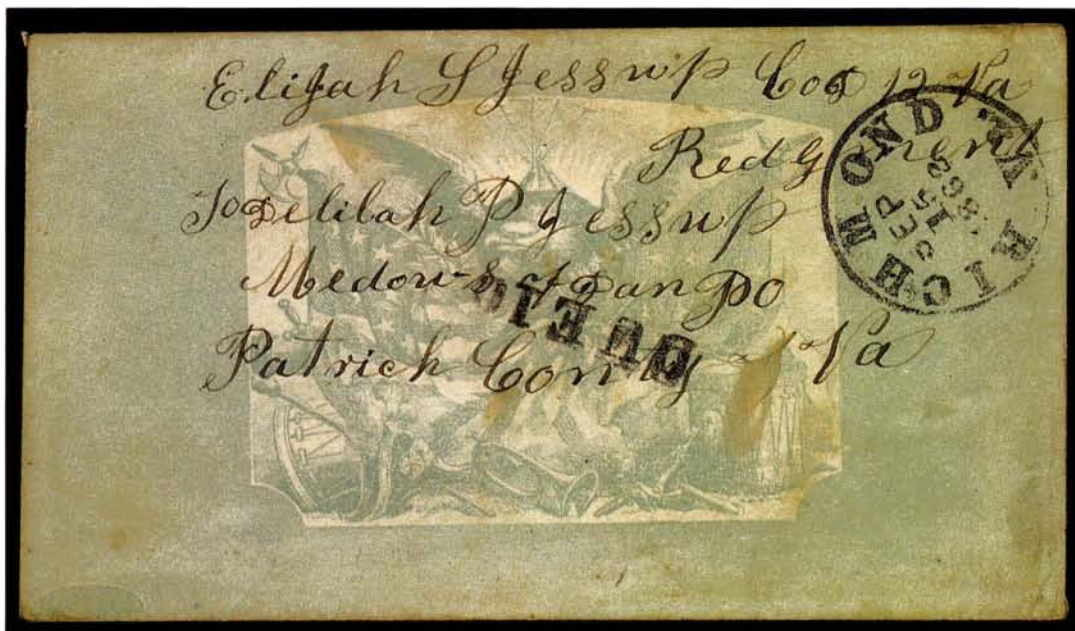 Elijah S Jessup Co D 12 Va
Redgment
To Delilah P Jessup
Medows of Dan PO
Patrick Conty Va
RICHMOND VA.
SEP
15
1862
DUE 10